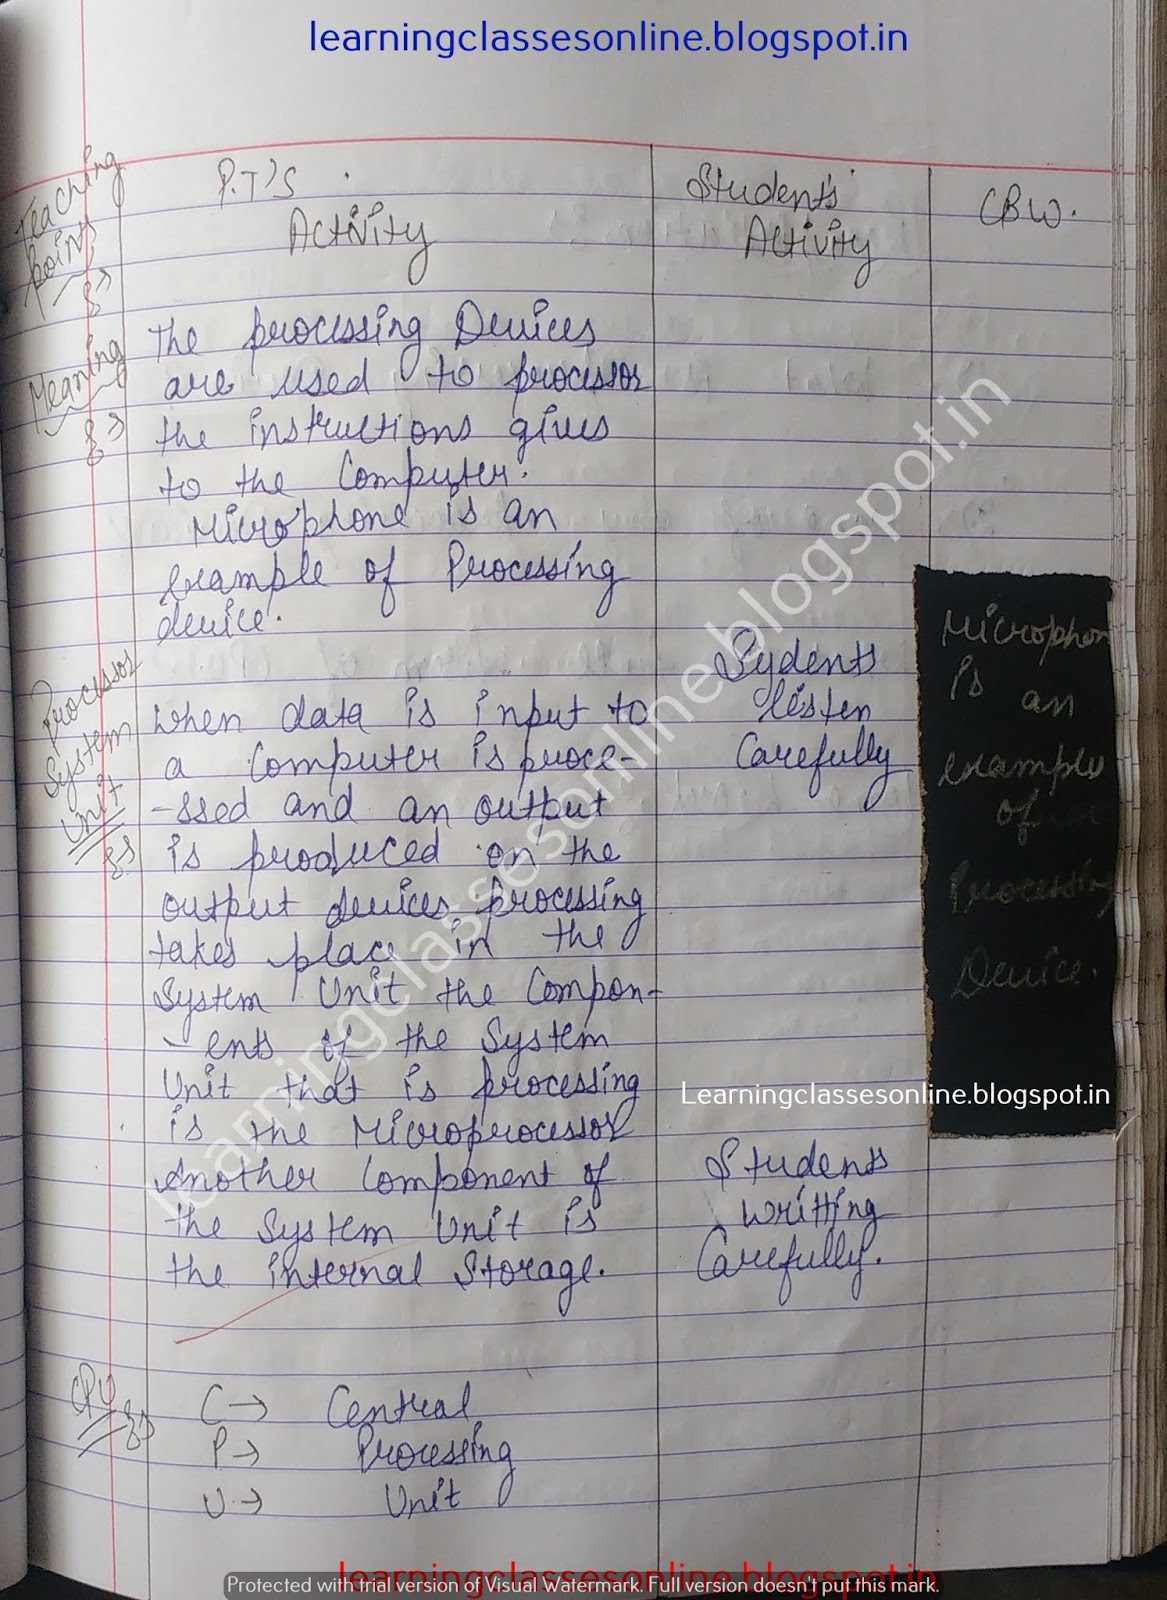 learningclassesonline.blogspot.in
Teaching
points
P.T'S
Activity
Students'
Activity
CBW.
Meaning
The processing Devices
are used to processor
the instructions gives
to the Computer.
Microphone is an
example of Processing
device.
Processor
System
Unit
When data is input to
a Computer is proce-
-ssed and an output
is produced on the
output devices, processing
takes place in the
System Unit the Compon-
- ents of the System
Unit that is processing
is the Microprocessor
Another Component of
the System Unit is
the internal Storage.
Sydents
listen
Carefully
Microphon
is an
example
of an
Processing
Device.
Learningclassesonline.blogspot.in
Students
writting
Carefully.
CPU
C → Central
P → Processing
U → Unit
learningclassesonline.blogspot.in
learningclassesonline.blogspot.in
Protected with trial version of Visual Watermark. Full version doesn't put this mark.